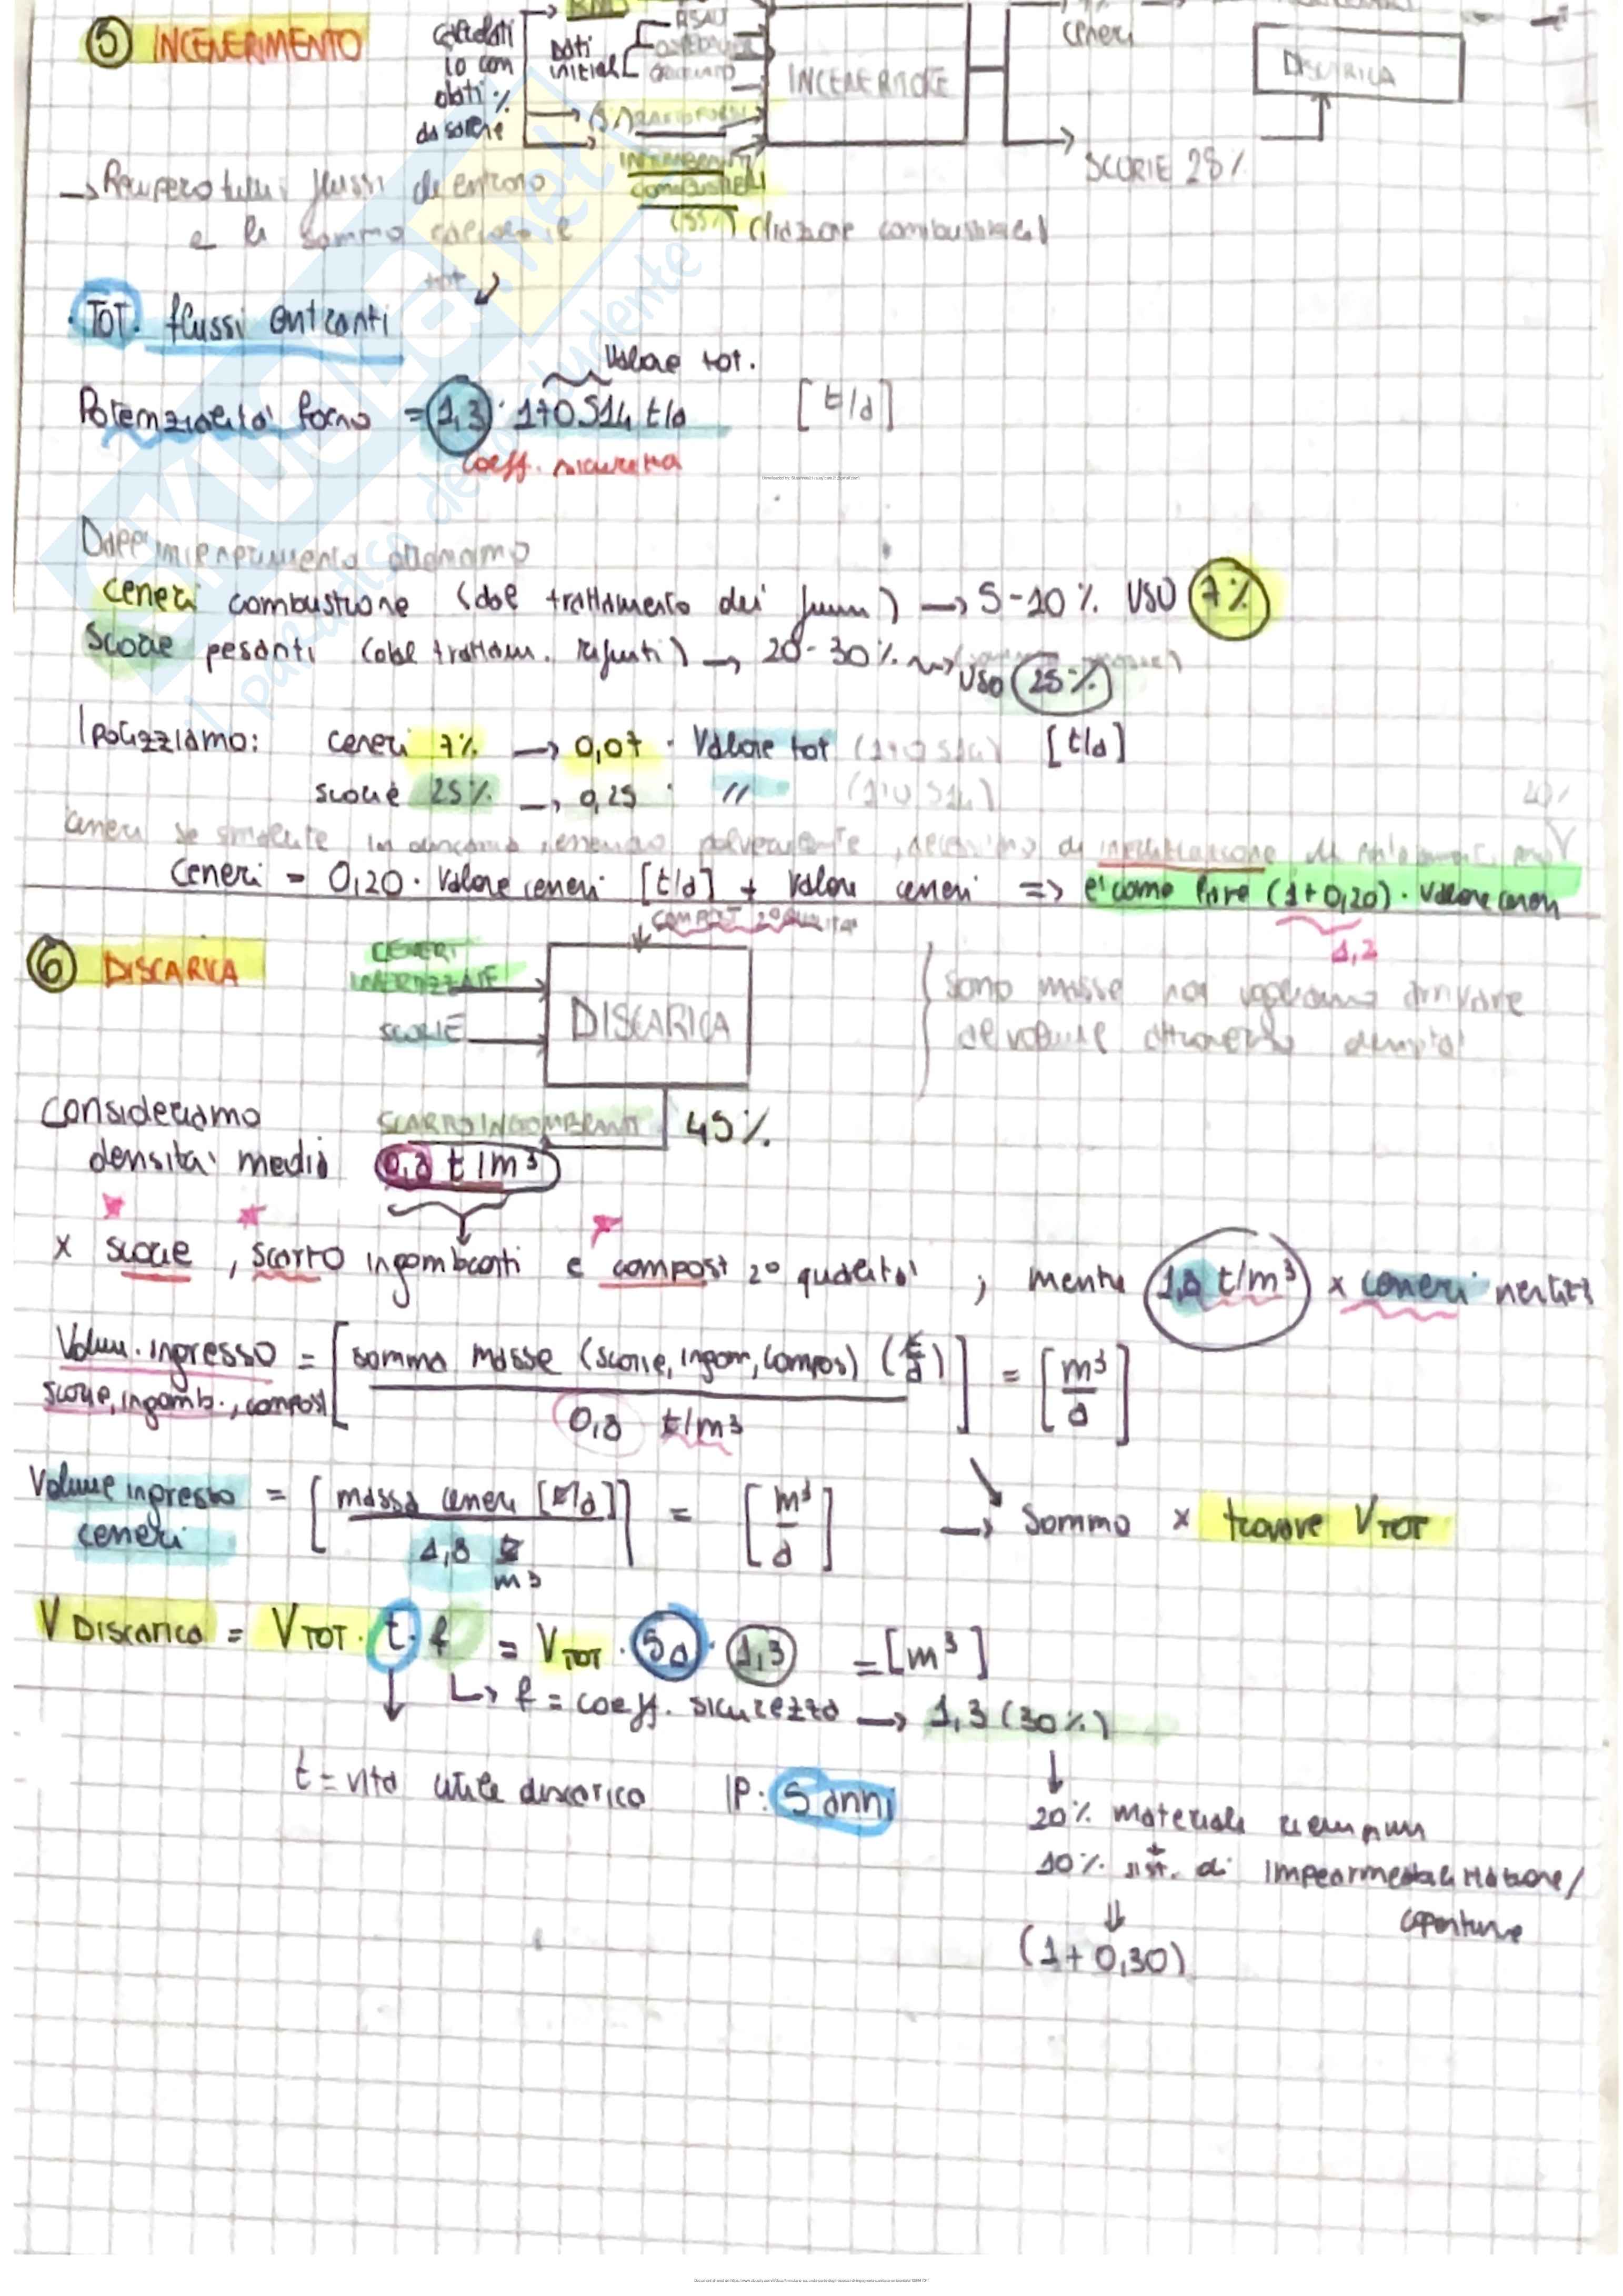 ⑤ INCENERIMENTO
calcolati
io con
dati %
da sopra
Dati
iniziali
RSAU
INCENERITORE
ceneri
DISCARICA
SCORIE 25%
INGOMBRANTI
COMBUSTIBILI
(55%) (frazione combustibile)
→ Recupero tutti i flussi che entrano
e la sommo
tot
• TOT. flussi entranti
Valore tot.
Potenzialità forno = 1,3 · 170514 t/d [t/d]
coeff. sicurezza
Dall'incenerimento otteniamo
ceneri combustione (dal trattamento dei fumi) → 5-10% USO 7%
scorie pesanti (dal trattam. rifiuti) → 20-30% USO 25%
Ipotizziamo: ceneri 7% → 0,07 · Valore tot (170514) [t/d]
scorie 25% → 0,25 · // (170514)
ceneri se smaltite in discarica, essendo polverulente, necessitano di inertizzazione
Ceneri = 0,20 · Valore ceneri [t/d] + Valore ceneri => è come fare (1+0,20) · Valore ceneri
1,2
COMPOST 2° QUALITA'
⑥ DISCARICA
CENERI
INERTIZZATE
SCORIE
DISCARICA
sono masse noi vogliamo arrivare
al volume attraverso densità
SCARTO INGOMBRANTI 45%
Consideriamo
densità media 0,8 t/m³
x scorie, scarto ingombranti e compost 2° qualità ; mentre 1,8 t/m³ x ceneri inertizz
Volum. ingresso = [somma masse (scorie, ingom, compos) (t/d)] = [m³/d]
scorie, ingomb., compost
0,8 t/m³
Volume ingresso = [massa ceneri [t/d]] = [m³/d] → Sommo x trovare VTOT
ceneri
1,8 t/m³
V Discarica = VTOT · t · f = VTOT · 5a · 1,3 = [m³]
↳ f = coeff. sicurezza → 1,3 (30%)
t = vita utile discarica IP: 5 anni
20% materiale riempim
+
10% sist. di impermeabilizzazione/
coperture
(1+0,30)